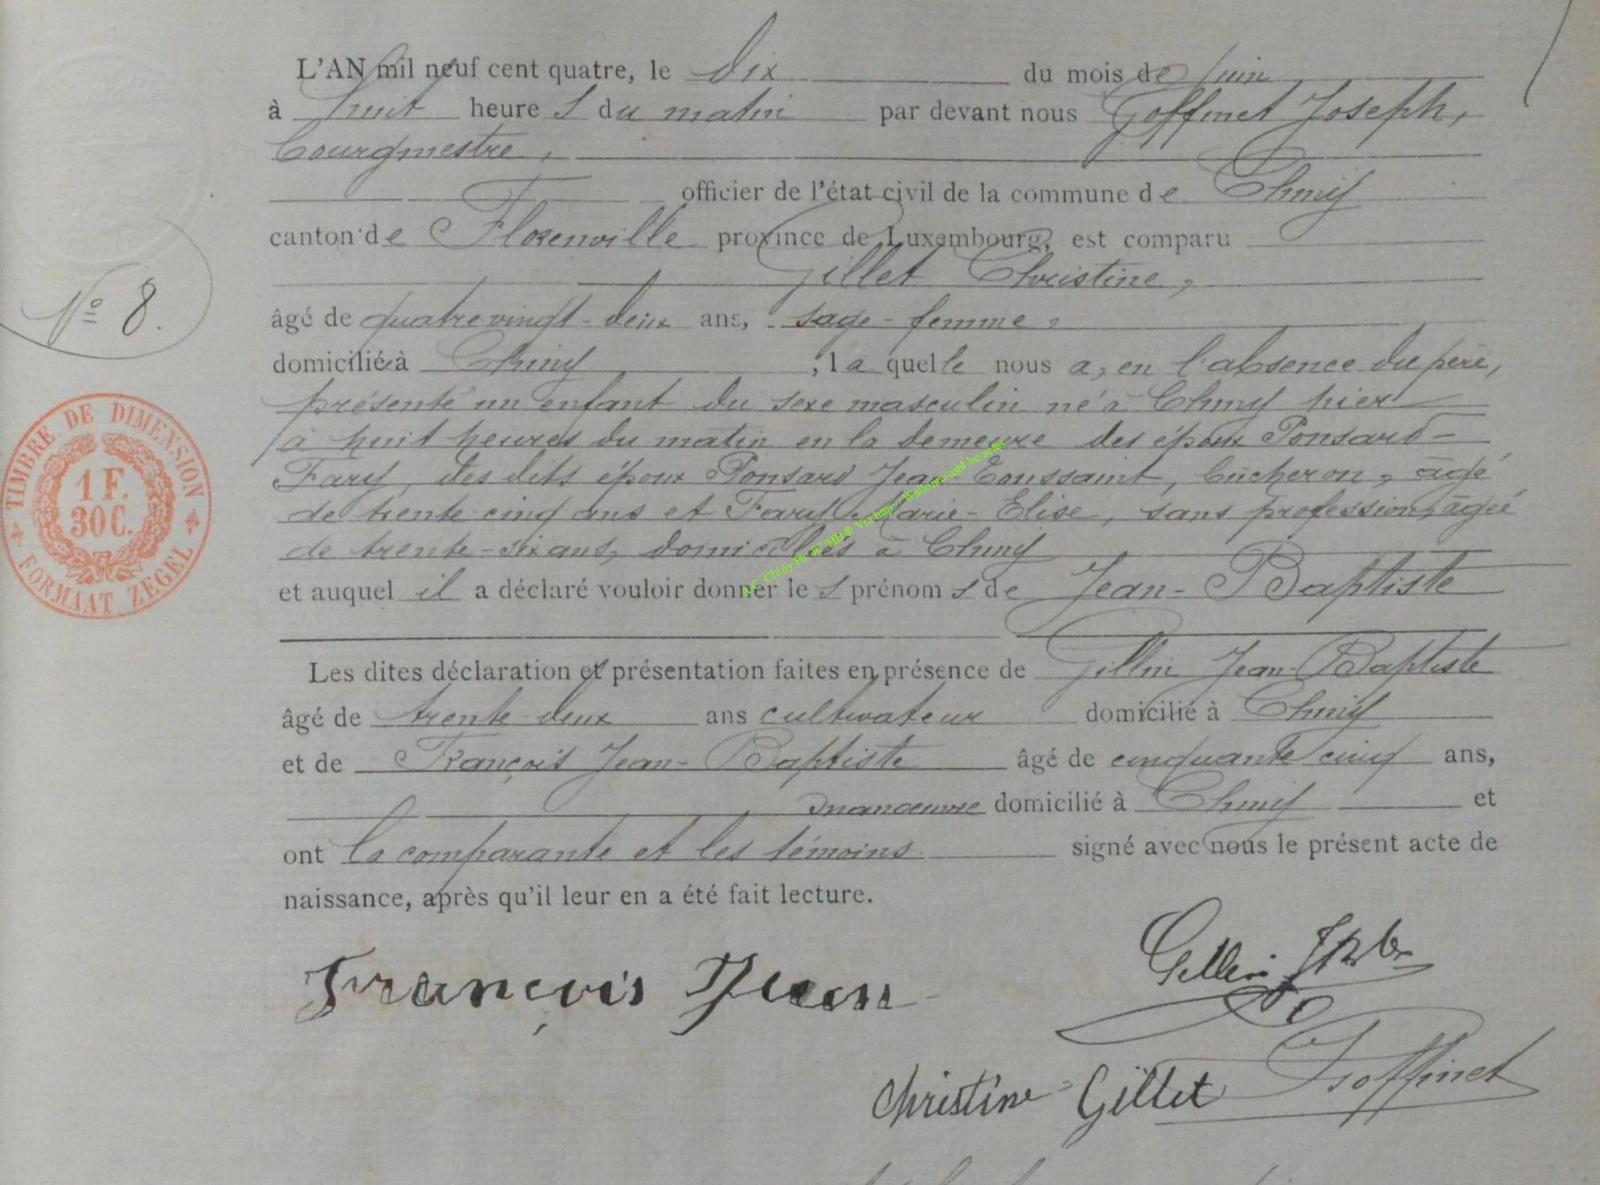 L'AN mil neuf cent quatre, le dix du mois de juin
à huit heure s du matin par devant nous Goffinet Joseph,
bourgmestre,
officier de l'état civil de la commune de Chiny
canton de Florenville province de Luxembourg, est comparu
Gillet Christine,
âgé de quatrevingt-deux ans, sage-femme,
domiciliée à Chiny, la quelle nous a, en l'absence du père,
présenté un enfant du sexe masculin né à Chiny hier
à huit heures du matin en la demeure des époux Ponsard-
Fary, des dits époux Ponsard Jean Toussaint, bûcheron, âgé
de trente-cinq ans et Fary Marie-Elise, sans profession, âgée
de trente-six ans, domiciliés à Chiny
et auquel il a déclaré vouloir donner le s prénom s de Jean-Baptiste
Les dites déclaration et présentation faites en présence de Gillin Jean-Baptiste
âgé de trente deux ans cultivateur domicilié à Chiny
et de François Jean-Baptiste âgé de cinquante cinq ans,
manoeuvre domicilié à Chiny et
ont la comparante et les témoins signé avec nous le présent acte de
naissance, après qu'il leur en a été fait lecture.
N° 8.
TIMBRE DE DIMENSION
1 F.
30 C.
FORMAAT ZEGEL
François Jean
Gillin
Christine Gillet Goffinet